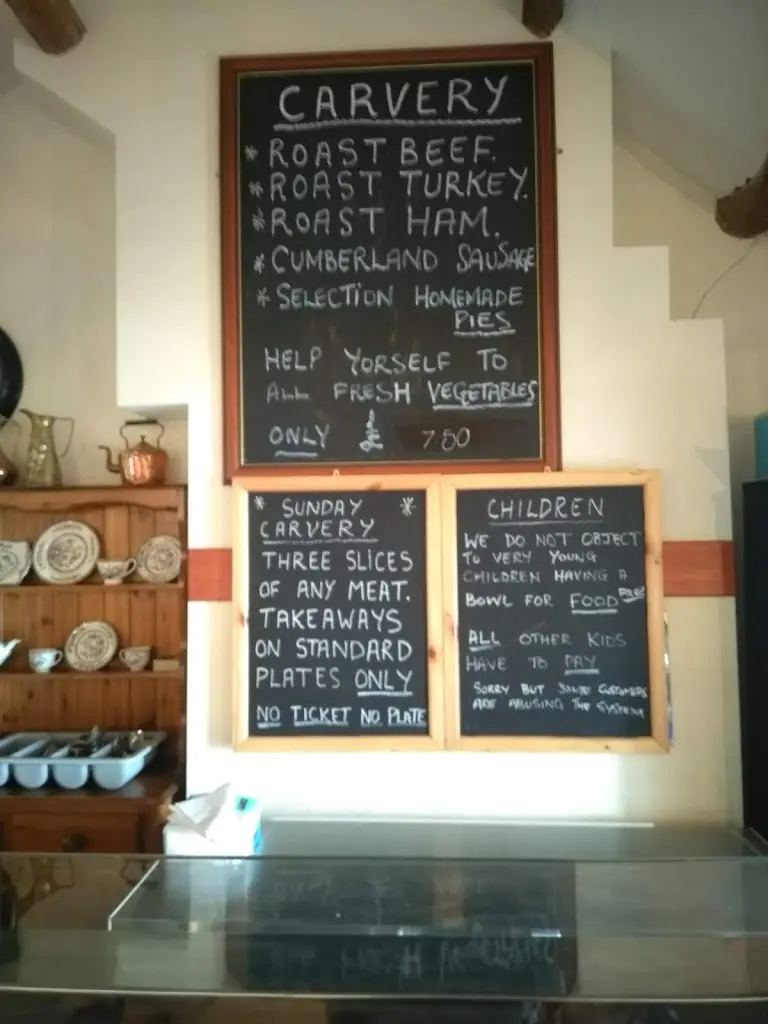 CARVERY
* ROAST BEEF.
* ROAST TURKEY.
* ROAST HAM.
* CUMBERLAND SAUSAGE
* SELECTION HOMEMADE
PIES
HELP YORSELF TO
ALL FRESH VEGETABLES
ONLY £ 7.50
* SUNDAY *
CARVERY
THREE SLICES
OF ANY MEAT.
TAKEAWAYS
ON STANDARD
PLATES ONLY
NO TICKET NO PLATE
CHILDREN
WE DO NOT OBJECT
TO VERY YOUNG
CHILDREN HAVING A
BOWL FOR FOOD FREE
ALL OTHER KIDS
HAVE TO PAY
SORRY BUT SOME CUSTOMERS
ARE ABUSING THE SYSTEM